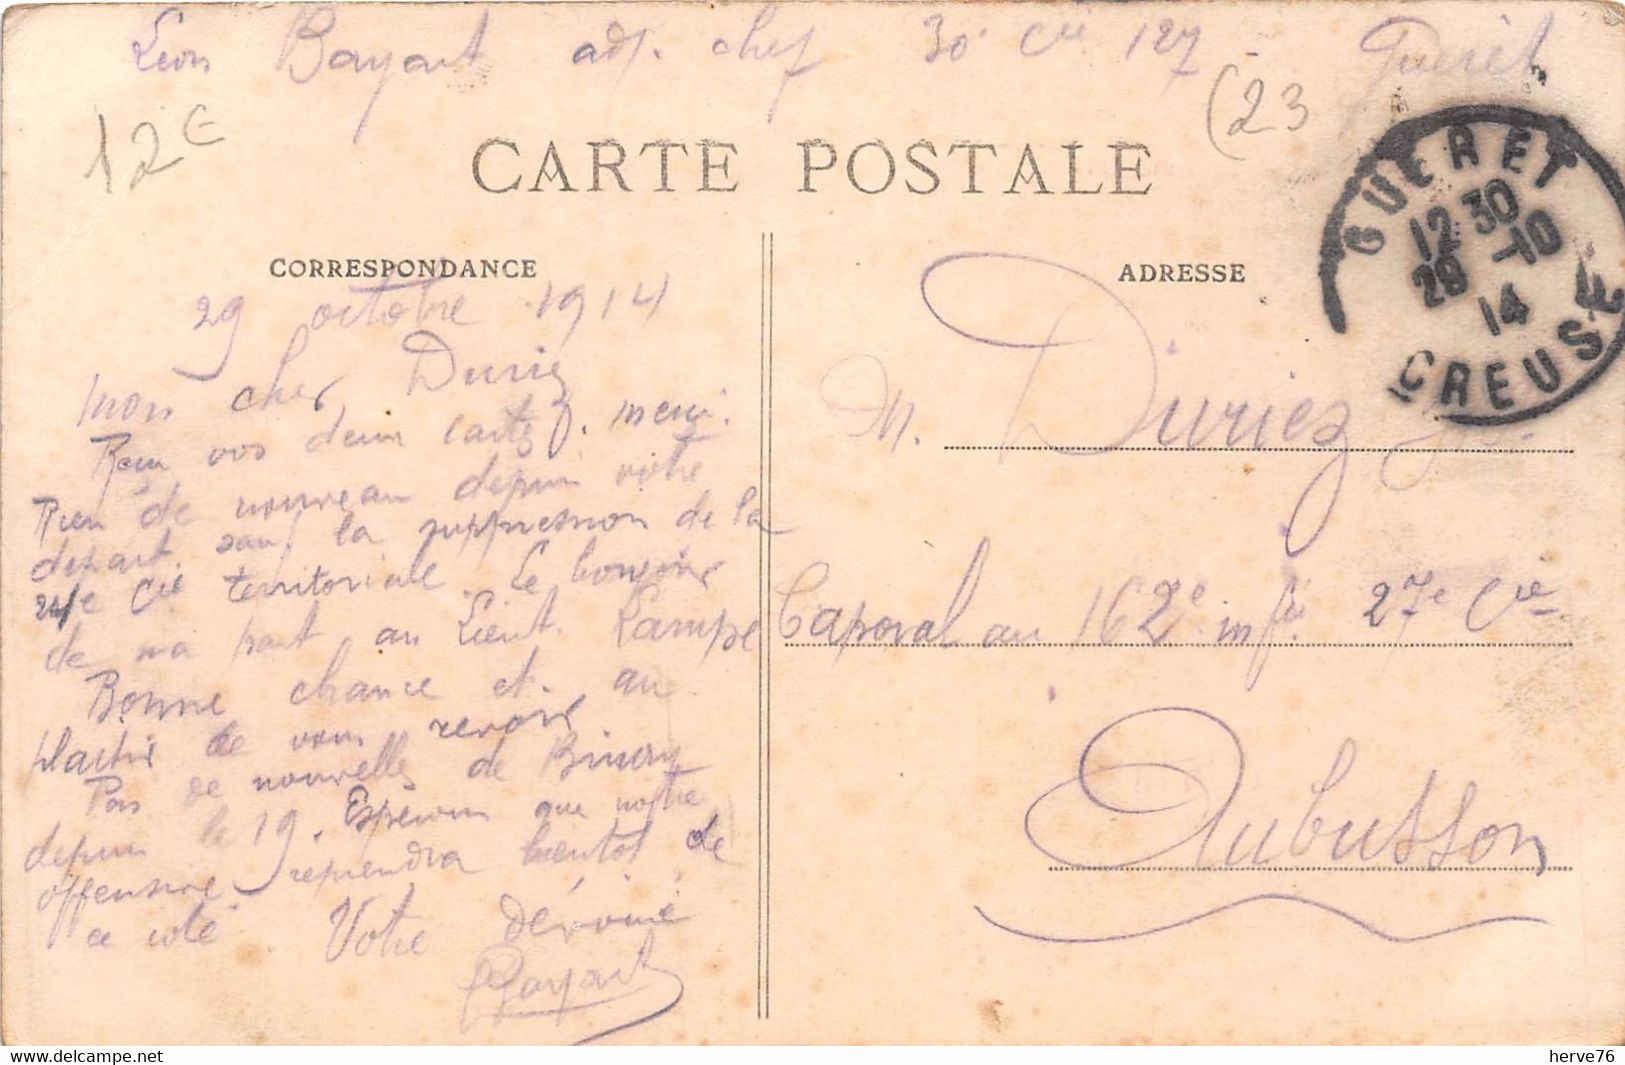 Léon Bayart adj. chef 30e Cie 127 - Guéret
12€
(23
CARTE POSTALE
GUERET
12 30
29 -10
14
CREUSE
CORRESPONDANCE
29 octobre 1914
Mon cher Duriez
Reçu vos deux cartes. Merci.
Rien de nouveau depuis votre
depart. sauf la suppression de la
24e Cie territoriale. Le bonjour
de ma part au Lieut. Lampe
Bonne chance et au
plaisir de vous revoir
Pas de nouvelles de
depuis le 19. Espérons que notre
offensive reprendra bientot de
ce coté. Votre dévoué
Bayart
ADRESSE
M. Duriez
Caporal au 162e inf. 27e Cie
Aubusson
herve76